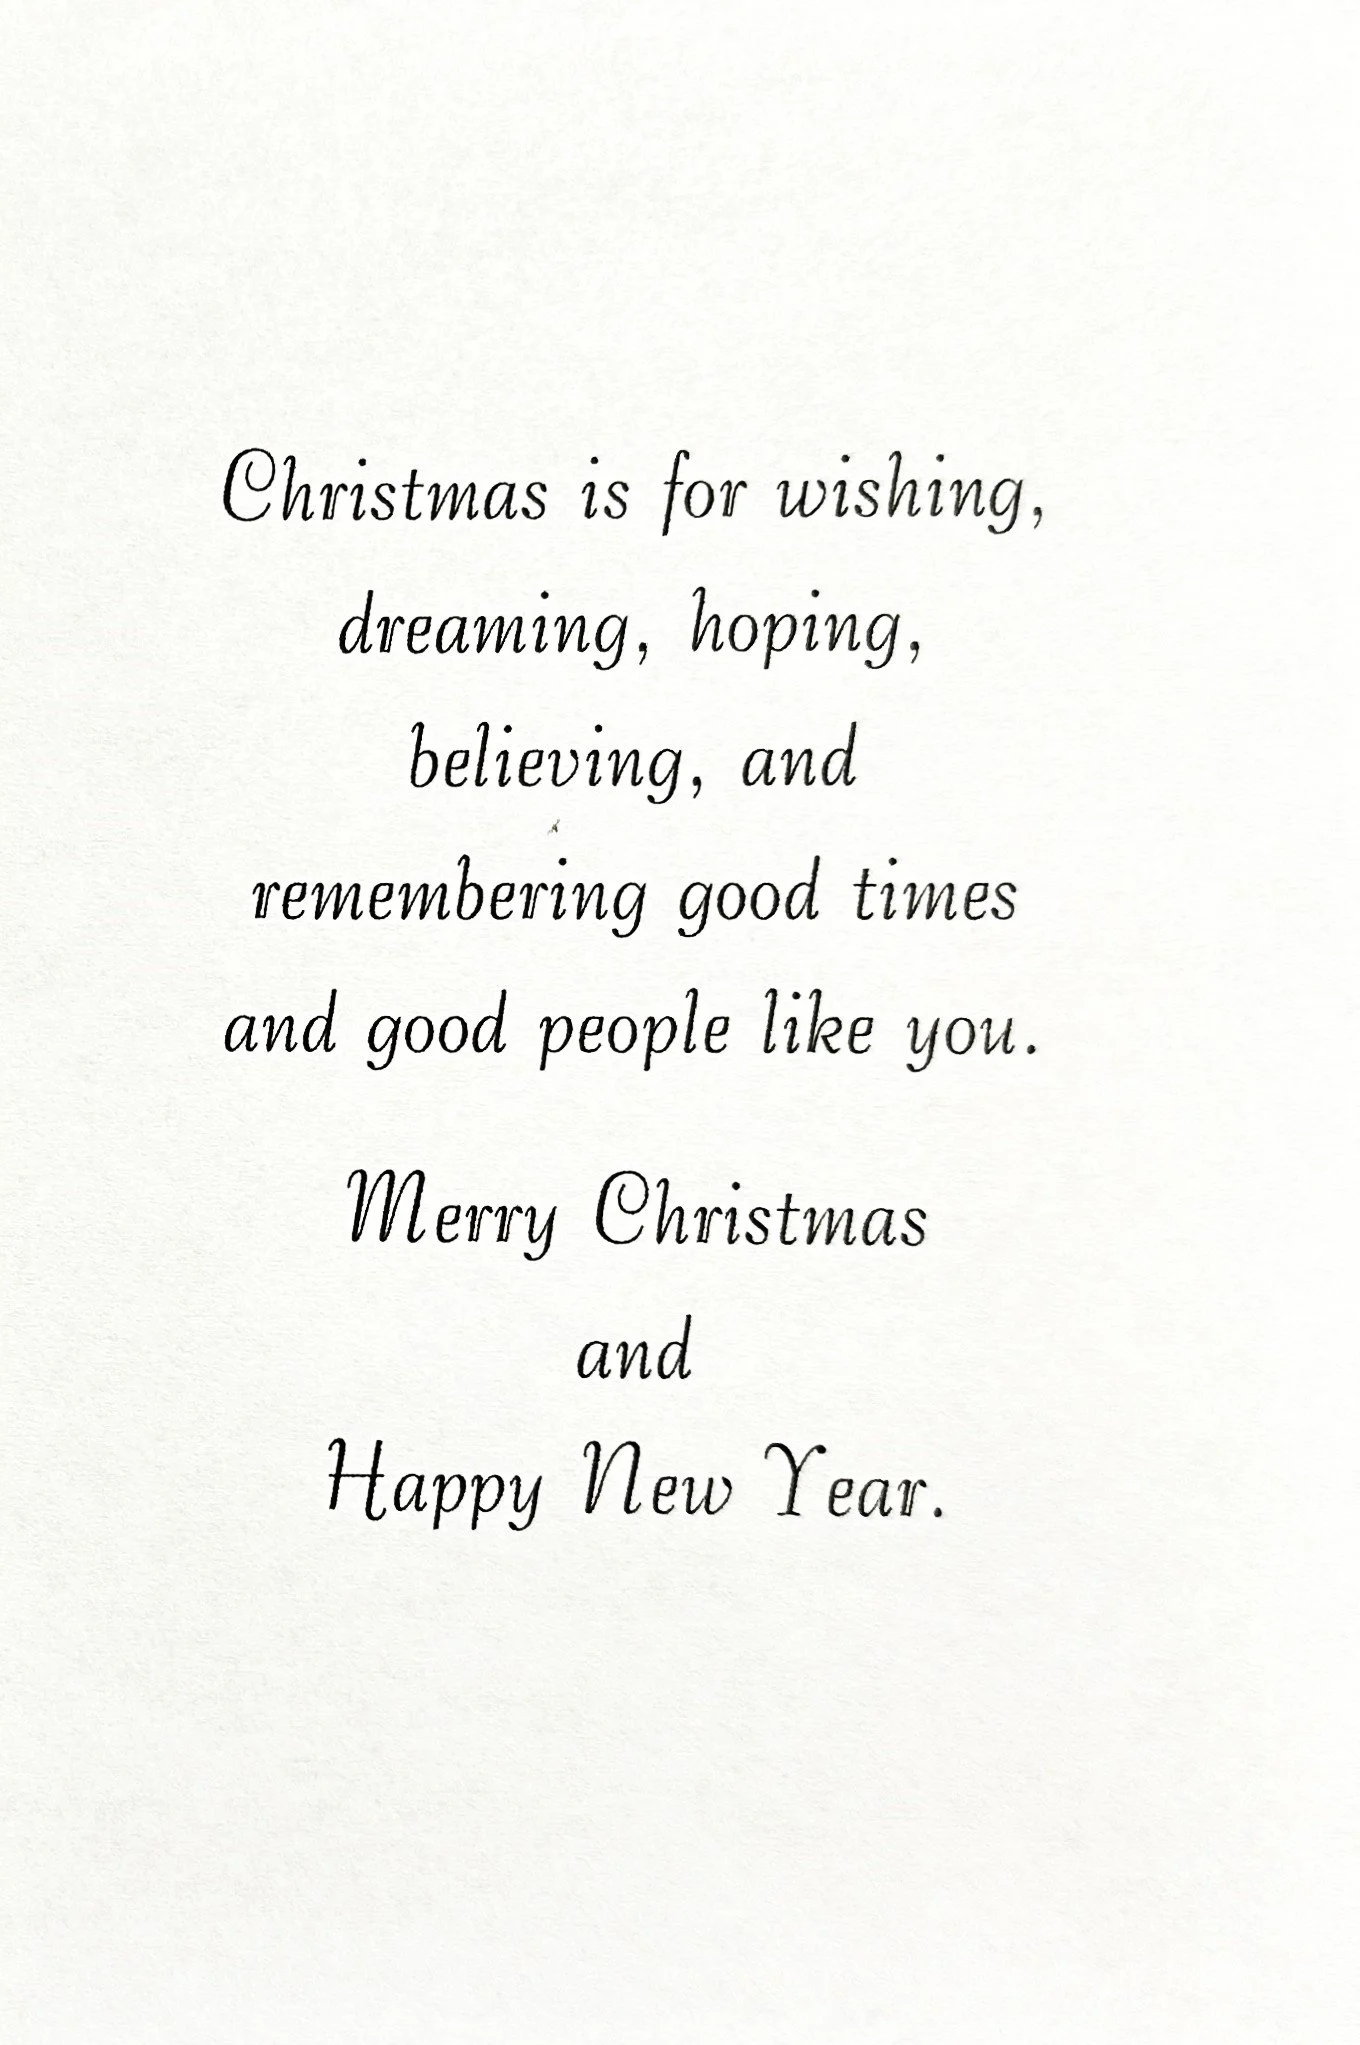 Christmas is for wishing,
dreaming, hoping,
believing, and
remembering good times
and good people like you.
Merry Christmas
and
Happy New Year.